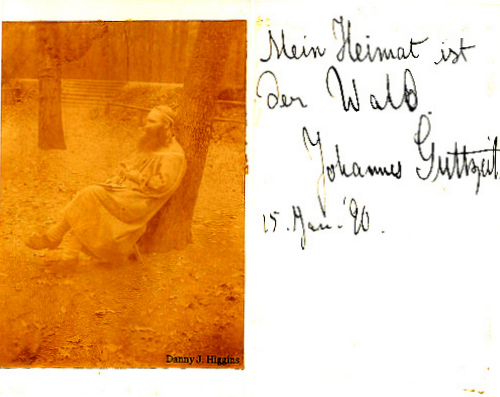 Mein Heimat ist
der Wald.
Johannes Guttzeit
15. Jan. '90.
Danny J. Higgins